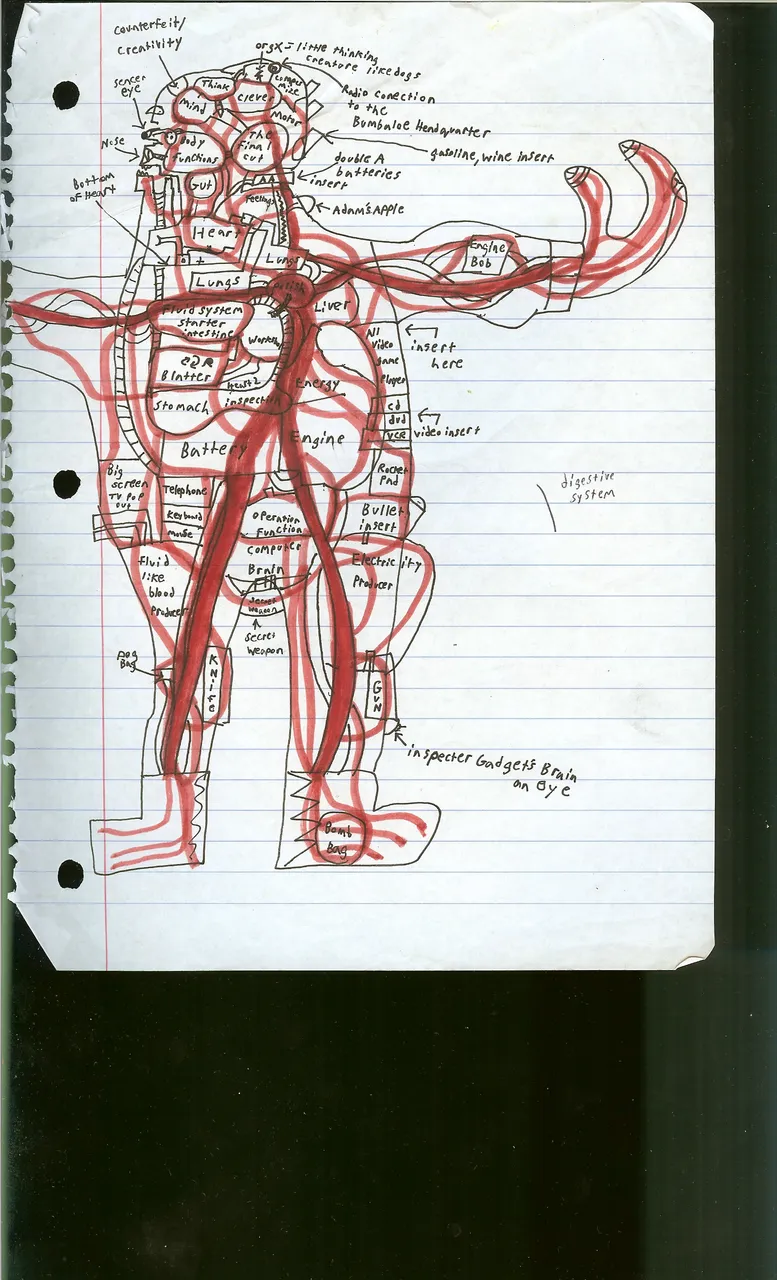 counterfeit/
creativity
orgx = little thinking
creature like dogs
sencer
eye
Think
Mind
clever
Radio conection
to the
Bumbaloe Headquarter
Motor
Nose
Body
functions
The
Finnal
cut
gasoline, wine insert
Bottom
of Heart
Gut
AA
double A
batteries
insert
Feelings
Adam's Apple
Heart
Lungs
Engine
Bob
Lungs
Liver
Fluid system
starter
intestine
All
video
game
Player
insert
here
Blatter
Heart 2
Energy
Stomach
inspection
cd
dvd
VCR
video insert
Battery
Engine
Big
screen
TV Pop
out
Telephone
Keyboard
mouse
Rocket
Pad
digestive
system
operation
Function
computer
Brain
Bullet
insert
Fluid
like
blood
Producer
Electricity
Producer
secret
weapon
secret
weapon
Bag
Knife
Gun
inspecter Gadget's Brain
an eye
Bomb
Bag